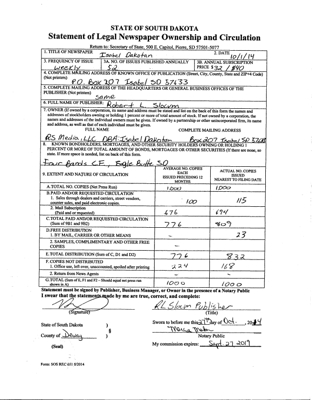 STATE OF SOUTH DAKOTA
Statement of Legal Newspaper Ownership and Circulation
Return to: Secretary of State, 500 E. Capitol, Pierre, SD 57501-5077
1. TITLE OF NEWSPAPER Isabel Dakotan 2. DATE 10/1/14
3. FREQUENCY OF ISSUE weekly 3A. NO. OF ISSUES PUBLISHED ANNUALLY 52 3B. ANNUAL SUBSCRIPTION PRICE $32
4. COMPLETE MAILING ADDRESS OF KNOWN OFFICE OF PUBLICATION (Street, City, County, State and ZIP+4 Code) (Not printers)
P.O. Box 207 Isabel SD 57633
5. COMPLETE MAILING ADDRESS OF THE HEADQUARTERS OR GENERAL BUSINESS OFFICES OF THE PUBLISHER (Not printers)
same
6. FULL NAME OF PUBLISHER: Robert L Slocum
7. OWNER (If owned by a corporation, its name and address must be stated and on the back of this form the names and addresses of stockholders owning or holding 1 percent or more of total amount of stock. If not owned by a corporation, the names and addresses of the individual owners must be given. If owned by a partnership or other unincorporated firm, its name and address, as well as that of each individual must be given.)
FULL NAME COMPLETE MAILING ADDRESS
RS Media, LLC DBA Isabel Dakotan Box 207 Isabel SD
8. KNOWN BONDHOLDERS, MORTGAGES, AND OTHER SECURITY HOLDERS OWNING OR HOLDING 1 PERCENT OR MORE OF TOTAL AMOUNT OF BONDS, MORTGAGES OR OTHER SECURITIES (If there are none, so state. If more space is needed, list on back of this form.
Four Bands CF, Eagle Butte SD
9. EXTENT AND NATURE OF CIRCULATION
AVERAGE NO. COPIES EACH ISSUES PRECEDING 12 MONTHS
ACTUAL NO. COPIES ISSUED NEAREST TO FILING DATE
A. TOTAL NO. COPIES (Net Press Run) 1000 1000
B. PAID AND/OR REQUESTED CIRCULATION
1. Sales through dealers and carriers, street vendors, counter sales, and paid electronic copies. 100 115
2. Mail Subscription (Paid and or requested) 676 694
C. TOTAL PAID AND/OR REQUESTED CIRCULATION (Sum of 9B1 and 9B2) 776 809
D. FREE DISTRIBUTION
1. BY MAIL, CARRIER OR OTHER MEANS – 23
2. SAMPLES, COMPLIMENTARY AND OTHER FREE COPIES – –
E. TOTAL DISTRIBUTION (Sum of C, D1 and D2) 776 832
F. COPIES NOT DISTRIBUTED
1. Office use, left over, unaccounted, spoiled after printing 224 168
2. Return from News Agents – –
G. TOTAL (Sum of E, F1 and F2 - Should equal net press run shown in A) 1000 1000
Statement must be signed by Publisher, Business Manager, or Owner in the presence of a Notary Public
I swear that the statements made by me are true, correct, and complete:
(Signature) RL Slocum Publisher (Title)
State of South Dakota )
County of Dewey )
(Seal)
Sworn to before me this day of Oct.
Notary Public
My commission expires: Sept 27 2019